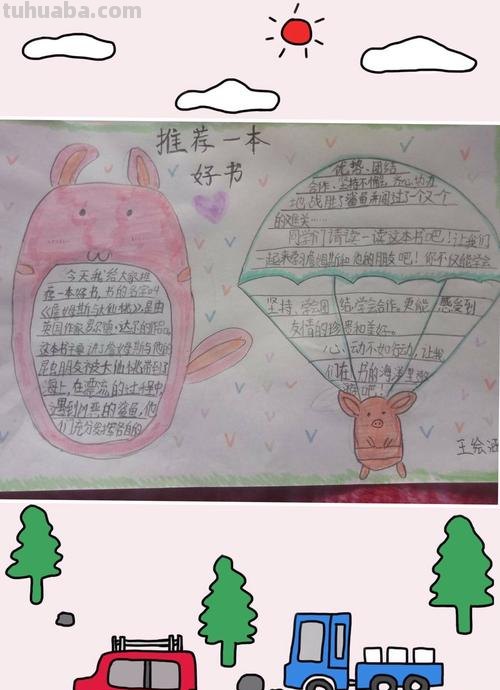 tuhuaba.com
推荐一本
好书
今天我给大家推
荐一本好书,书的名字叫
《詹姆斯与大仙桃》,是由
英国作家罗尔德·达尔的作品。
这本书主要讲了詹姆斯与他的
昆虫朋友被大仙桃带到了
海上,在漂流的过程中,
遇到凶恶的鲨鱼,他
们充分发挥各自的
优势、团结
合作、坚持不懈、齐心协力
地战胜了鲨鱼并闯过了一个又一个
的难关……
同学们请读一读这本书吧!让我们
一起来学习詹姆斯和他的朋友吧!你不仅能学会
坚持、学会团结、学会合作。更能感受到
友情的珍贵和美好。
心动不如行动,让我
们在书的海洋里遨
游吧!
王绘涵